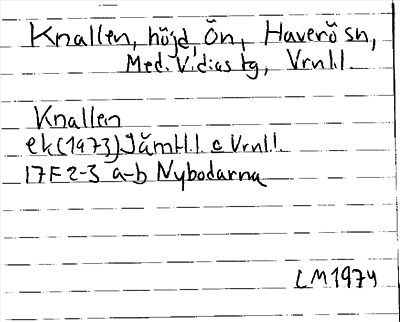 Knallen, höjd, Ön, Haverö sn,
Med. Vidias tg, Vrnl.l.
Knallen
ek(1973) Jämtl.l. o Vrnl.l.
17E 2-3 a-b Nybodarna
LM 1974